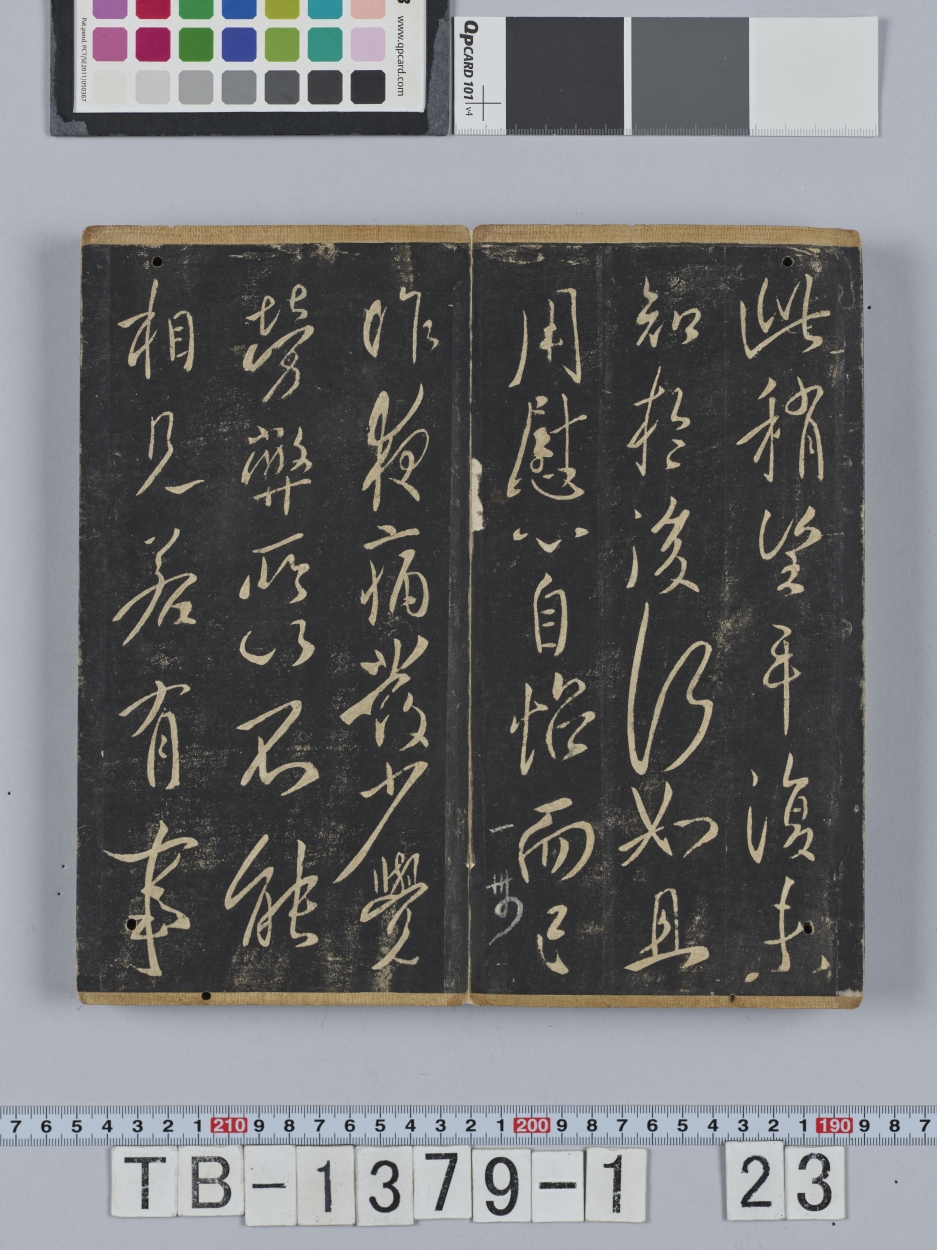 www.qpcard.com
QPCARD 101 v4
此稍望平復未
知於後何如且
用慰心自怡而已
昨夜病發少覺
勞弊所以不能
相見若有事
7 6 5 4 3 2 1 210 9 8 7 6 5 4 3 2 1 200 9 8 7 6 5 4 3 2 1 190 9 8 7
TB-1379-1 23